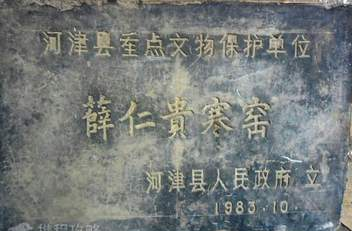 河津县重点文物保护单位
薛仁貴寒窑
河津县人民政府 立
1983.10.
携程攻略